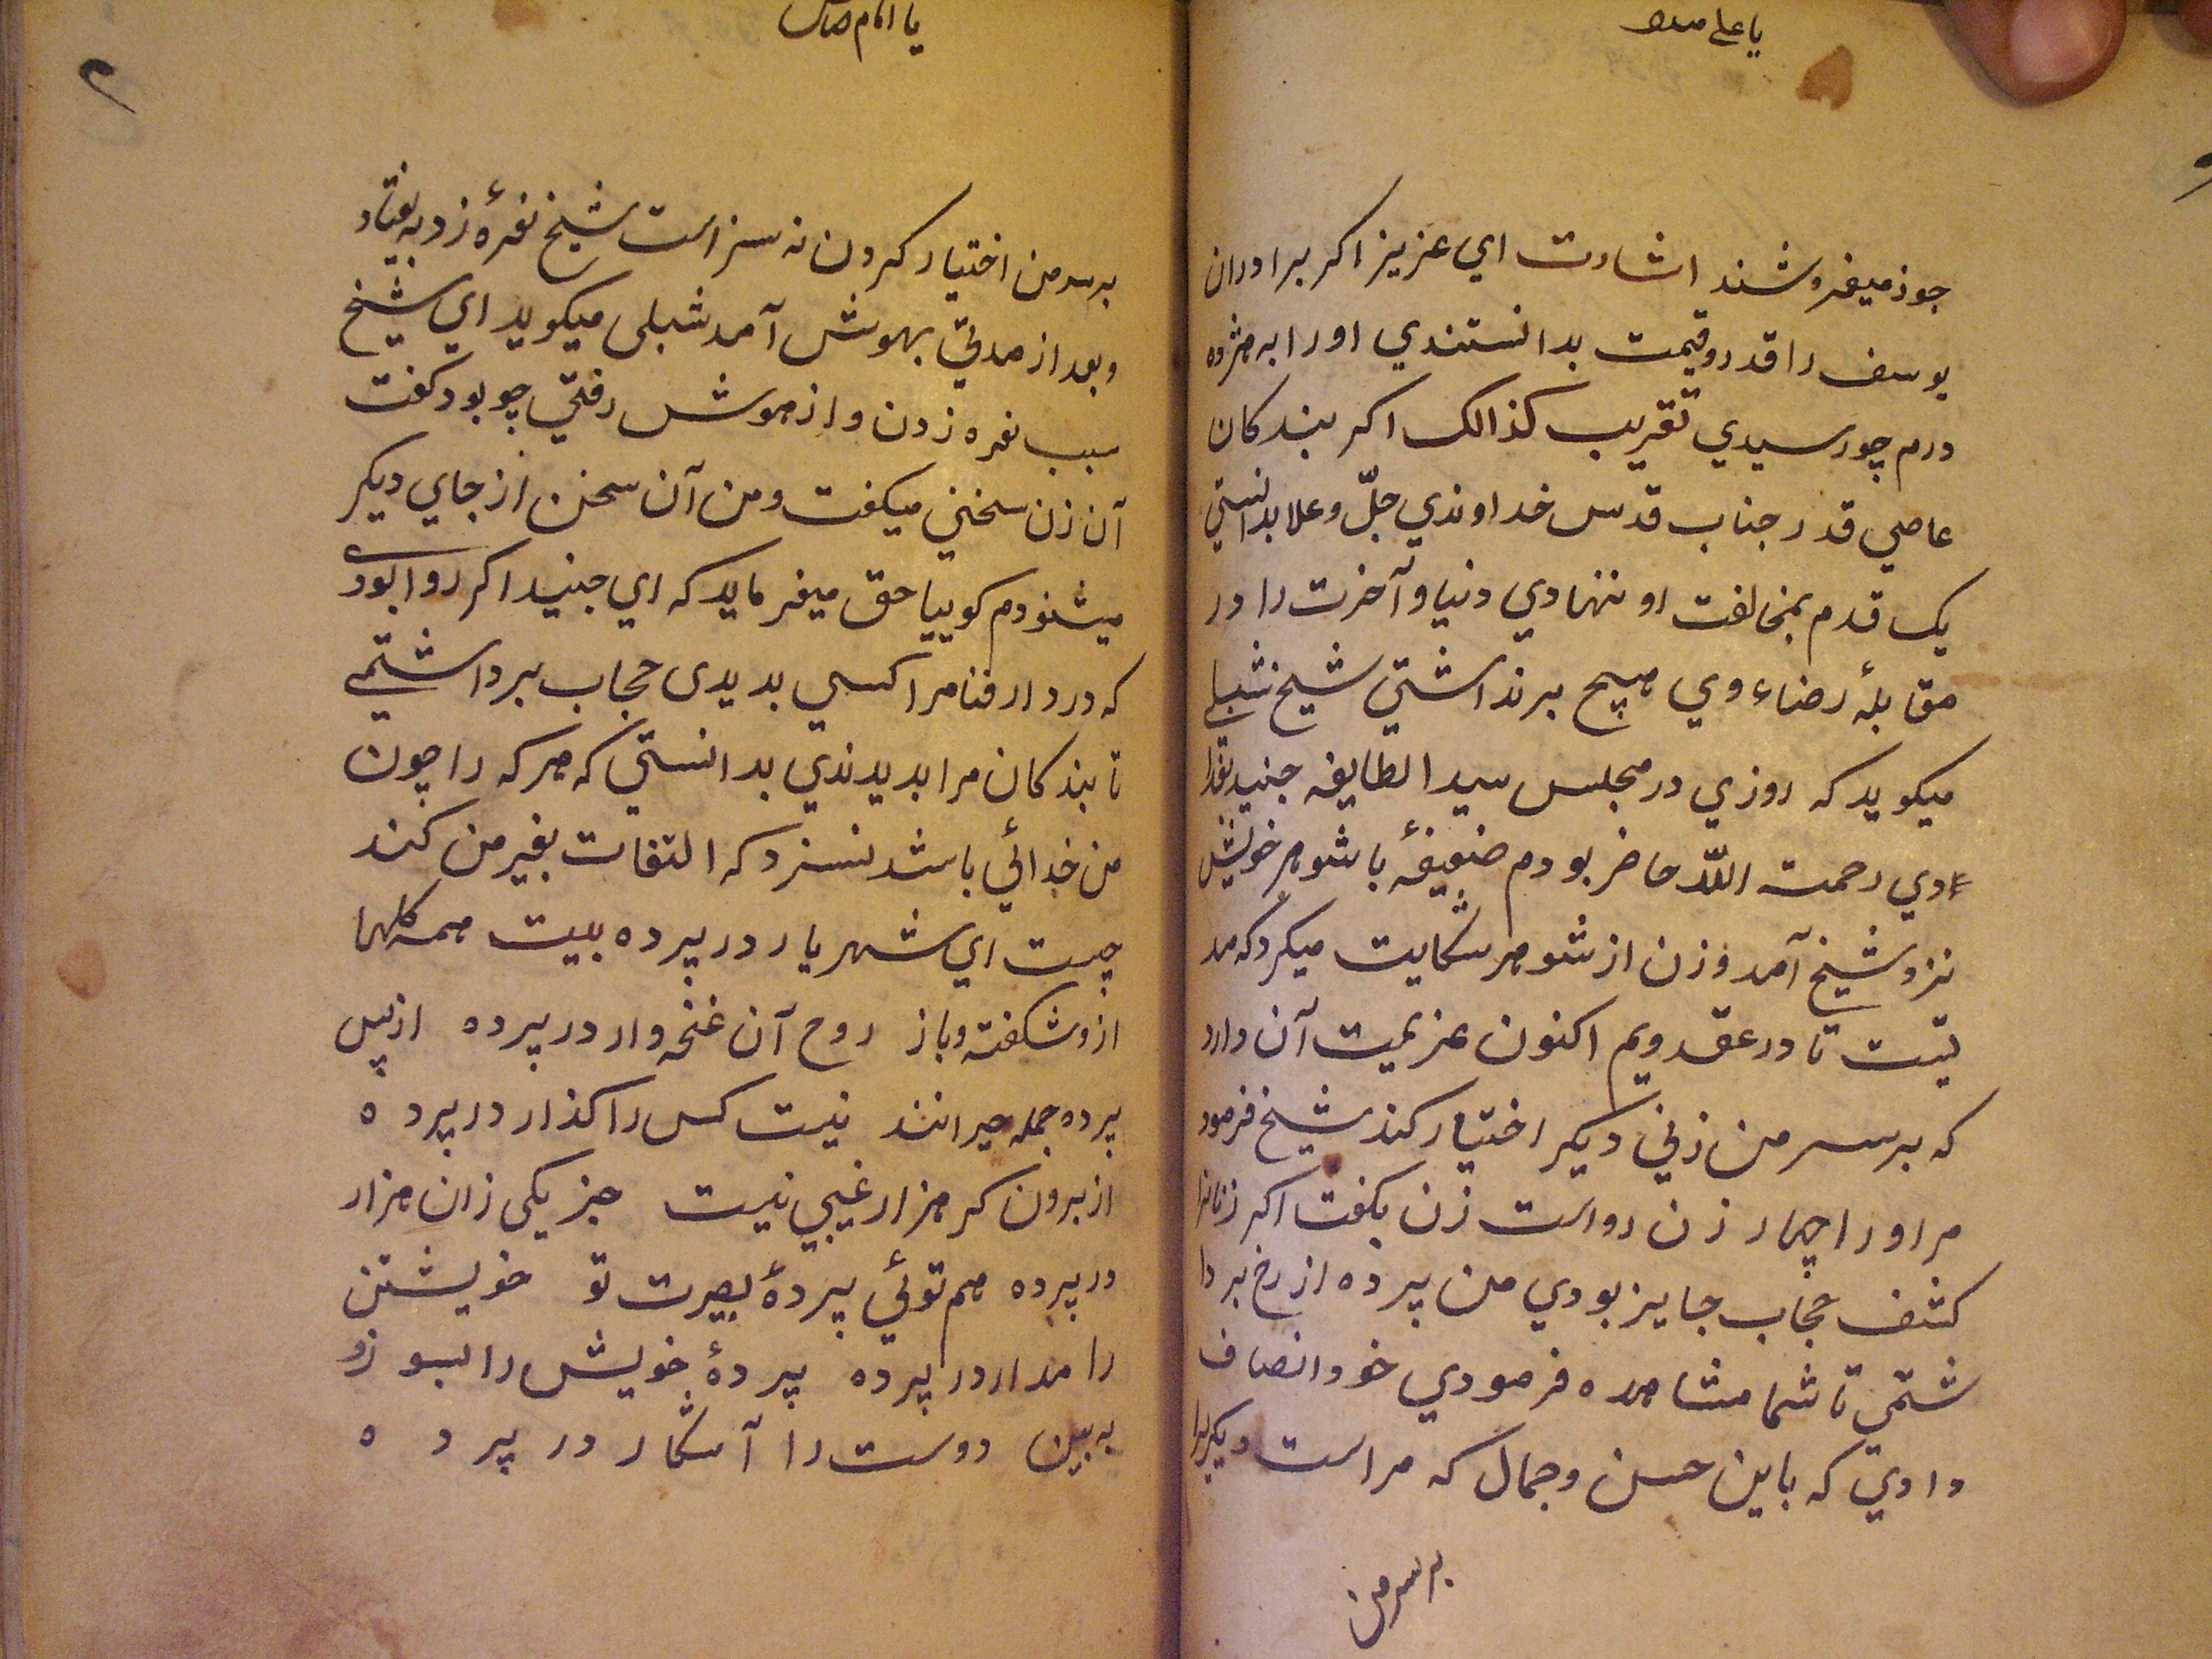 یا علی مدد
جوذ میفروشند اشارت اي عزیز اکر برادران
یوسف را قدر و قیمت بدانستندي اورا به هژده
درم چو رسیدي تقریب کذالک اکر بندکان
عاصي قدر جناب قدس خداوندي جلّ وعلا بدانستي
یک قدم بمخالفت او ننهادي دنیا وآخرت را در
مقابلهٔ رضاء وي هیچ برنداشتي شیخ شبلے
میکوید که روزي در مجلس سید الطایفه جنید بغدا
دي رحمت اللّه حاضر بودم ضعیفهٔ با شوهر خویش
نزد شیخ آمد و زن از شوهر شکایت میکرد که مد
تیست تا در عقد ویم اکنون عزیمیت آن دارد
که بر سر من زني دیکر اختیار کند شیخ فرمود
مر اورا چهار زن رواست زن بکفت اکر زنانرا
کشف حجاب جایز بودي من پرده از رخ بردا
شتمي تا شما مشاهده فرمودي خود انصاف
دادي که باین حسن وجمال که مراست دیکریرا
بر سر من
یا امام
۲
بر سر من اختیار کردن نه سزاست شیخ نعرهٔ زد بیفتاد
وبعد از مدتي بهوش آمد شبلی میکوید اي شیخ
سبب نعره زدن و از هوش رفتي چو بود کفت
آن زن سخني میکفت ومن آن سخن از جاي دیکر
میشنودم کوییا حق میفرماید که اي جنید اکر روا بودی
که در دار فنا مرا کسي بدیدی حجاب برداشتمے
تا بندکان مرا بدیدندي بدانستي که هر که را چون
من خدائي باشد نسزد که التفات بغیر من کند
چیست اي شهریار در پرده بیت همه کلها
ازو شکفته وباز روح آن غنچه وار در پرده از پس
پرده جمله حیرانند نیست کس را کذار در پرده
از برون کر هزار غیبي نیست جز یکی زان هزار
در پرده هم توئي پردهٔ بصیرت تو خویشتن
را مدار در پرده پردهٔ خویش را بسوز و
به بین دوست را آشکار در پرده